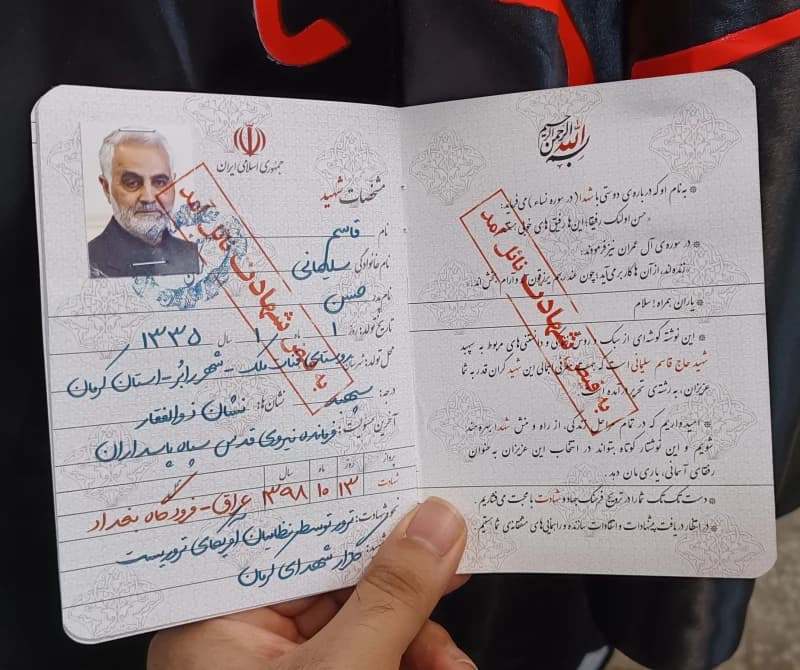 جمهوری اسلامی ایران
مشخصات شهید
نام قاسم
نام خانوادگی سلیمانی
نام پدر حسن
تاریخ تولد: روز ۱ ماه ۱ سال ۱۳۳۵
محل تولد: روستای قنات ملک - شهر رابُر - استان کرمان
درجه: سپهبد نشان‌ها: نشان ذوالفقار
آخرین مسئولیت: فرمانده نیروی قدس سپاه پاسداران
پرواز روز ماه سال
شهادت ۱۳ ۱۰ ۱۳۹۸ عراق - فرودگاه بغداد
نحوه شهادت: ترور توسط نظامیان آمریکای تروریست
گلزار شهدای کرمان
به فیض شهادت نائل آمد
بسم الله الرحمن الرحیم
* به نام او که درباره‌ی دوستی با شهدا (در سوره نساء) می‌فرماید:
«حسن اولئک رفیقا؛ این‌ها رفیق‌های خوبی هستند»
* در سوره‌ی آل عمران نیز فرمودند:
«زنده‌اند، از آن‌ها کار بر می‌آید؛ چون عند ربهم یرزقون‌اند و آرام بخش‌اند.»
* یاران همراه! سلام
* این نوشته گوشه‌ای از سبک و روش و دانستنی‌های مربوط به سپهبد
شهید حاج قاسم سلیمانی است که جهت معرفی اجمالی این شهید گران قدر به شما
عزیزان، به رشته‌ی تحریر درآمده است.
* امیدواریم که در تمام مراحل زندگی، از راه و منش شهدا بهره‌مند
شویم و این نوشتار کوتاه بتواند در انتخاب این عزیزان به عنوان
رفقای آسمانی، یاری مان دهد.
* دست تک تک شما را در ترویج فرهنگ جهاد و شهادت با محبت می‌فشاریم.
* در انتظار دریافت پیشنهادات و انتقادات سازنده و راهنمایی‌های مشفقانه‌ی شما هستیم.
به فیض شهادت نائل آمد